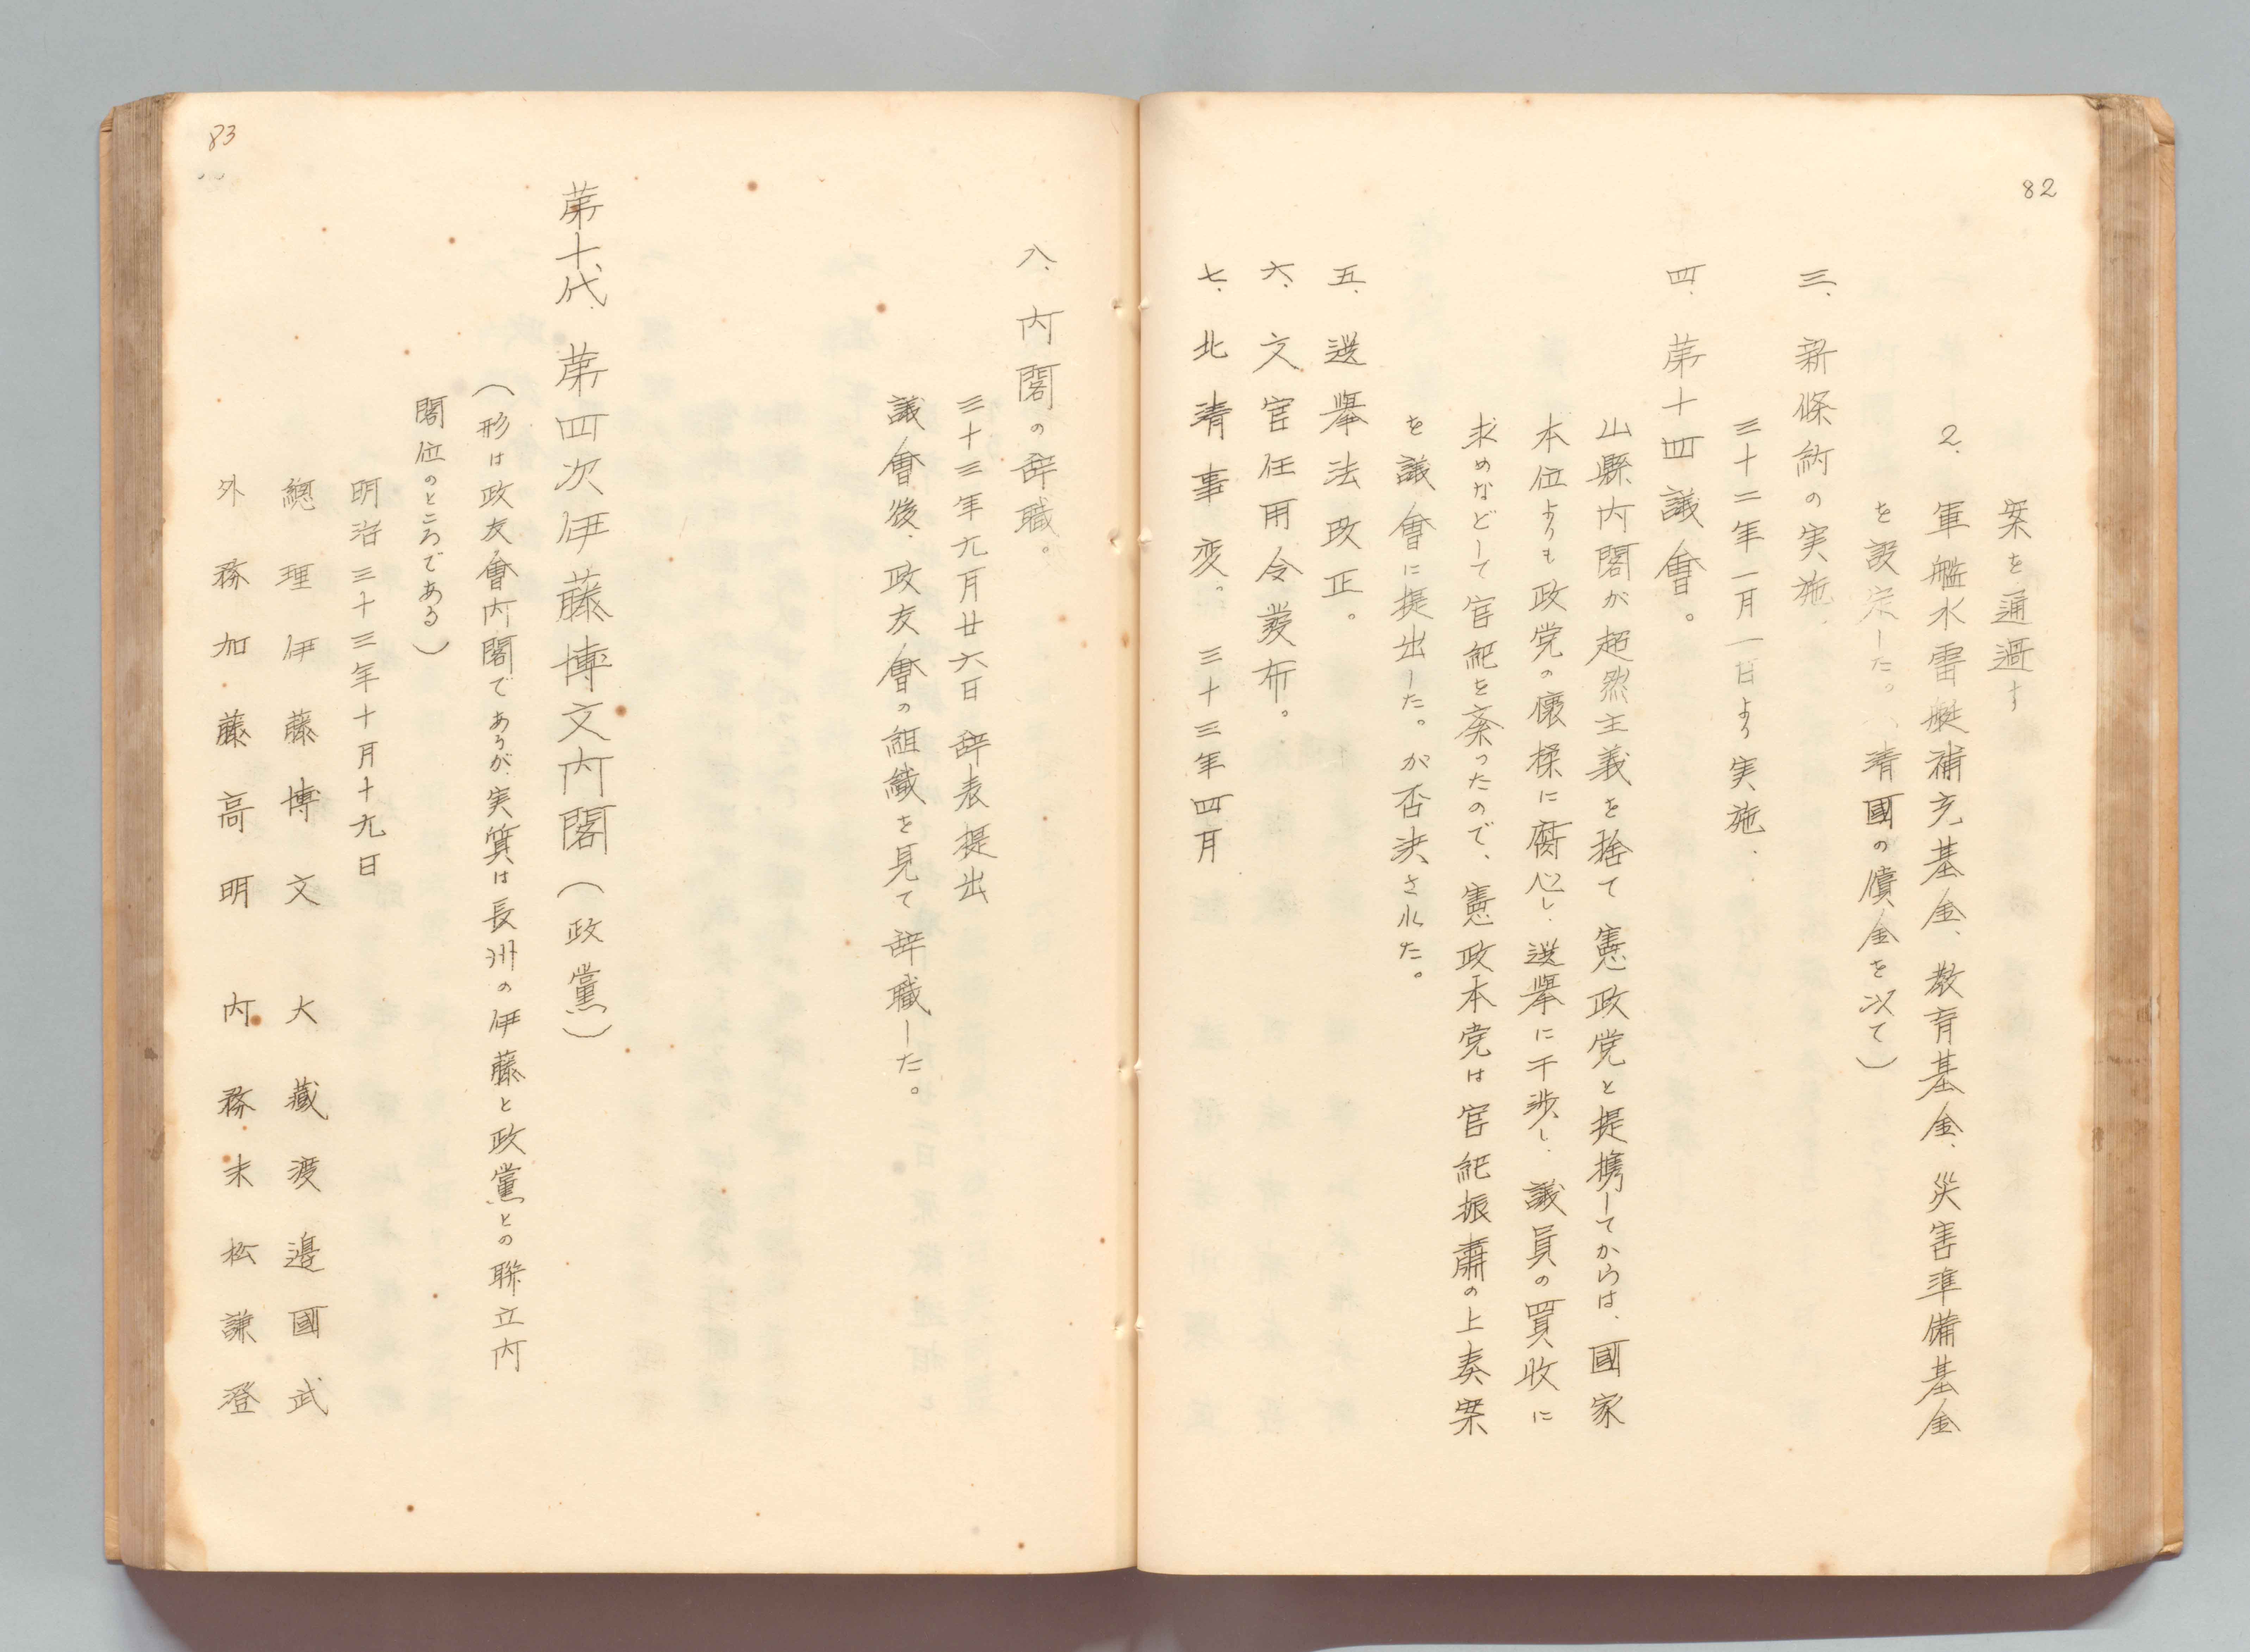 82
案を通過す
2. 軍艦水雷艇補充基金、教育基金、災害準備基金
を設定した。(清國の償金を以て)
三、新條約の実施、
三十二年一月一日より実施、
四、第十四議會。
山縣内閣が超然主義を捨て憲政党と提携してからは、國家
本位よりも政党の懐柔に腐心し、選挙に干渉し、議員の買収に
求めなどして官紀を紊ったので、憲政本党は官紀振肅の上奏案
を議會に提出した。が否決された。
五、選擧法改正。
六、文官任用令発布。
七、北清事変。三十三年四月
83
八、内閣の辞職。
三十三年九月廿六日辞表提出
議會後、政友會の組織を見て辞職した。
第十代、第四次伊藤博文内閣(政黨)
(形は政友會内閣であるが、実質は長洲の伊藤と政黨との聯立内
閣位のところである)
明治三十三年十月十九日
總理伊藤博文 大藏渡邊國武
外務加藤高明 内務末松謙澄